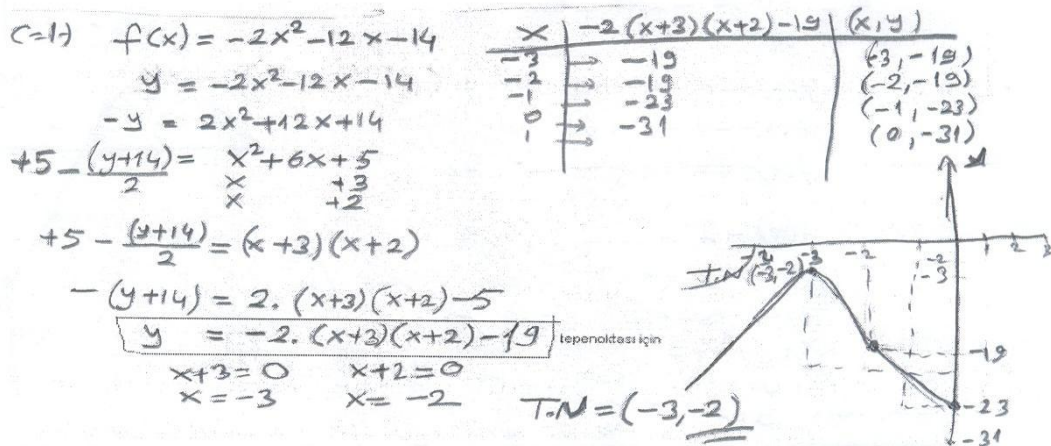 C=1-) f(x) = -2x²-12x-14
y = -2x²-12x-14
-y = 2x²+12x+14
+5 - (y+14)/2 = x²+6x+5
x +3
x +2
+5 - (y+14)/2 = (x+3)(x+2)
-(y+14) = 2.(x+3)(x+2)-5
y = -2.(x+3)(x+2)-19 tepenoktası için
x+3=0 x+2=0
x=-3 x=-2
x | -2(x+3)(x+2)-19 | (x,y)
-3 → -19 (-3,-19)
-2 → -19 (-2,-19)
-1 → -23 (-1,-23)
0 → -31 (0,-31)
1 →
y
-3 -2 1 2 3
-2
-3
T.N (-3,-2)
-19
-23
-31
T.N=(-3,-2)